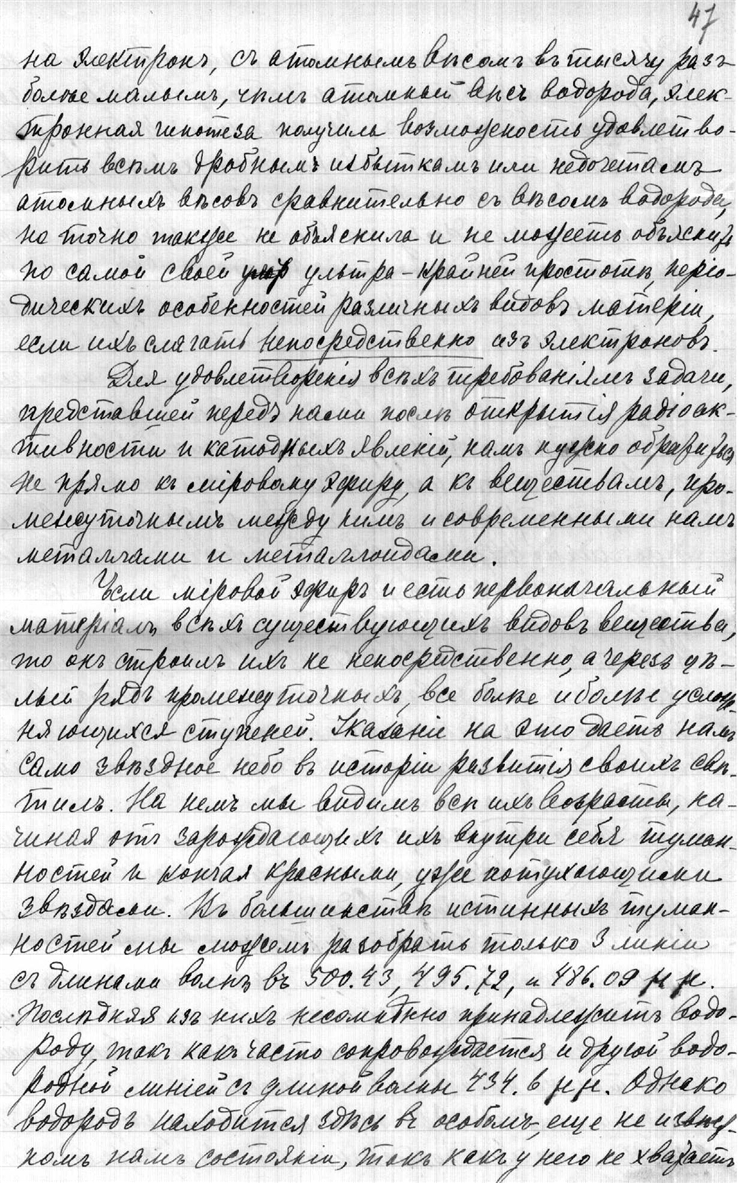 47
на электронъ, съ атомнымъ вѣсомъ въ тысячу разъ
болѣе малымъ, чѣмъ атомный вѣсъ водорода, элек-
тронная гипотеза получила возможность удовлетво-
рить всѣмъ дробнымъ избыткамъ или недочетамъ
атомныхъ вѣсовъ сравнительно съ вѣсомъ водорода,
но точно также не объяснила и не можетъ объяснить
по самой своей ультра-крайней простотѣ, періо-
дическихъ особенностей различныхъ видовъ матеріи,
если ихъ слагать непосредственно изъ электроновъ.
Для удовлетворенія всѣхъ требованіямъ задачи,
представшей передъ нами послѣ открытія радіоак-
тивности и катодныхъ явленій, намъ нужно обратиться
не прямо къ міровому эфиру, а къ веществамъ, про-
межуточнымъ между нимъ и современными намъ
металлами и металлоидами.
Если міровой эфиръ и есть первоначальный
матеріалъ всѣхъ существующихъ видовъ вещества,
то онъ строилъ ихъ не непосредственно, а черезъ цѣ-
лый рядъ промежуточныхъ, все болѣе и болѣе услож-
няющихся ступеней. Указаніе на это даетъ намъ
само звѣздное небо въ исторіи развитія своихъ свѣ-
тилъ. На немъ мы видимъ всѣ ихъ возрасты, на-
чиная отъ зарождающихъ ихъ внутри себя туман-
ностей и кончая красными, уже потухающими
звѣздами. Въ большинствѣ истинныхъ туман-
ностей мы можемъ разобрать только 3 линіи
съ длинами волнъ въ 500.43, 495.72, и 486.09 μμ.
Послѣдняя изъ нихъ несомнѣнно принадлежитъ водо-
роду, такъ какъ часто сопровождается и другой водо-
родной линіей съ длиной волны 434.6 μμ. Однако
водородъ находится здѣсь въ особомъ, еще не извѣст-
номъ намъ состояніи, такъ какъ у него не хватаетъ